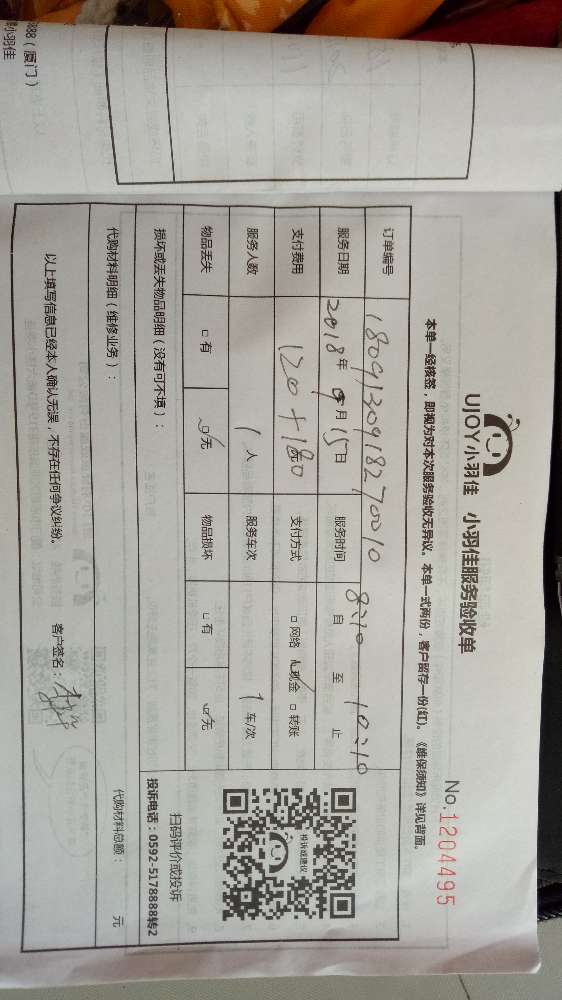 888（厦门）
小羽佳
UJOY小羽佳 小羽佳服务验收单
No.1204495
本单一经核签，即视为对本次服务验收无异议。本单一式两份，客户留存一份(红)。《维保须知》详见背面。
订单编号 1809130918270010
服务日期 2018年9月15日 服务时间 8:10 自 至 10:10 止
支付费用 120+180 元 支付方式 □网络 ☑现金 □转账
服务人数 1 人 服务车次 1 车/次
物品丢失 □有 ☑无 物品损坏 □有 ☑无
投诉或建议
扫码评价或投诉
投诉电话：0592-5178888转2
损坏或丢失物品明细（没有可不填）：
代购材料明细（维修业务）： 代购材料总额： 元
以上填写信息已经本人确认无误，不存在任何争议纠纷。 客户签名：